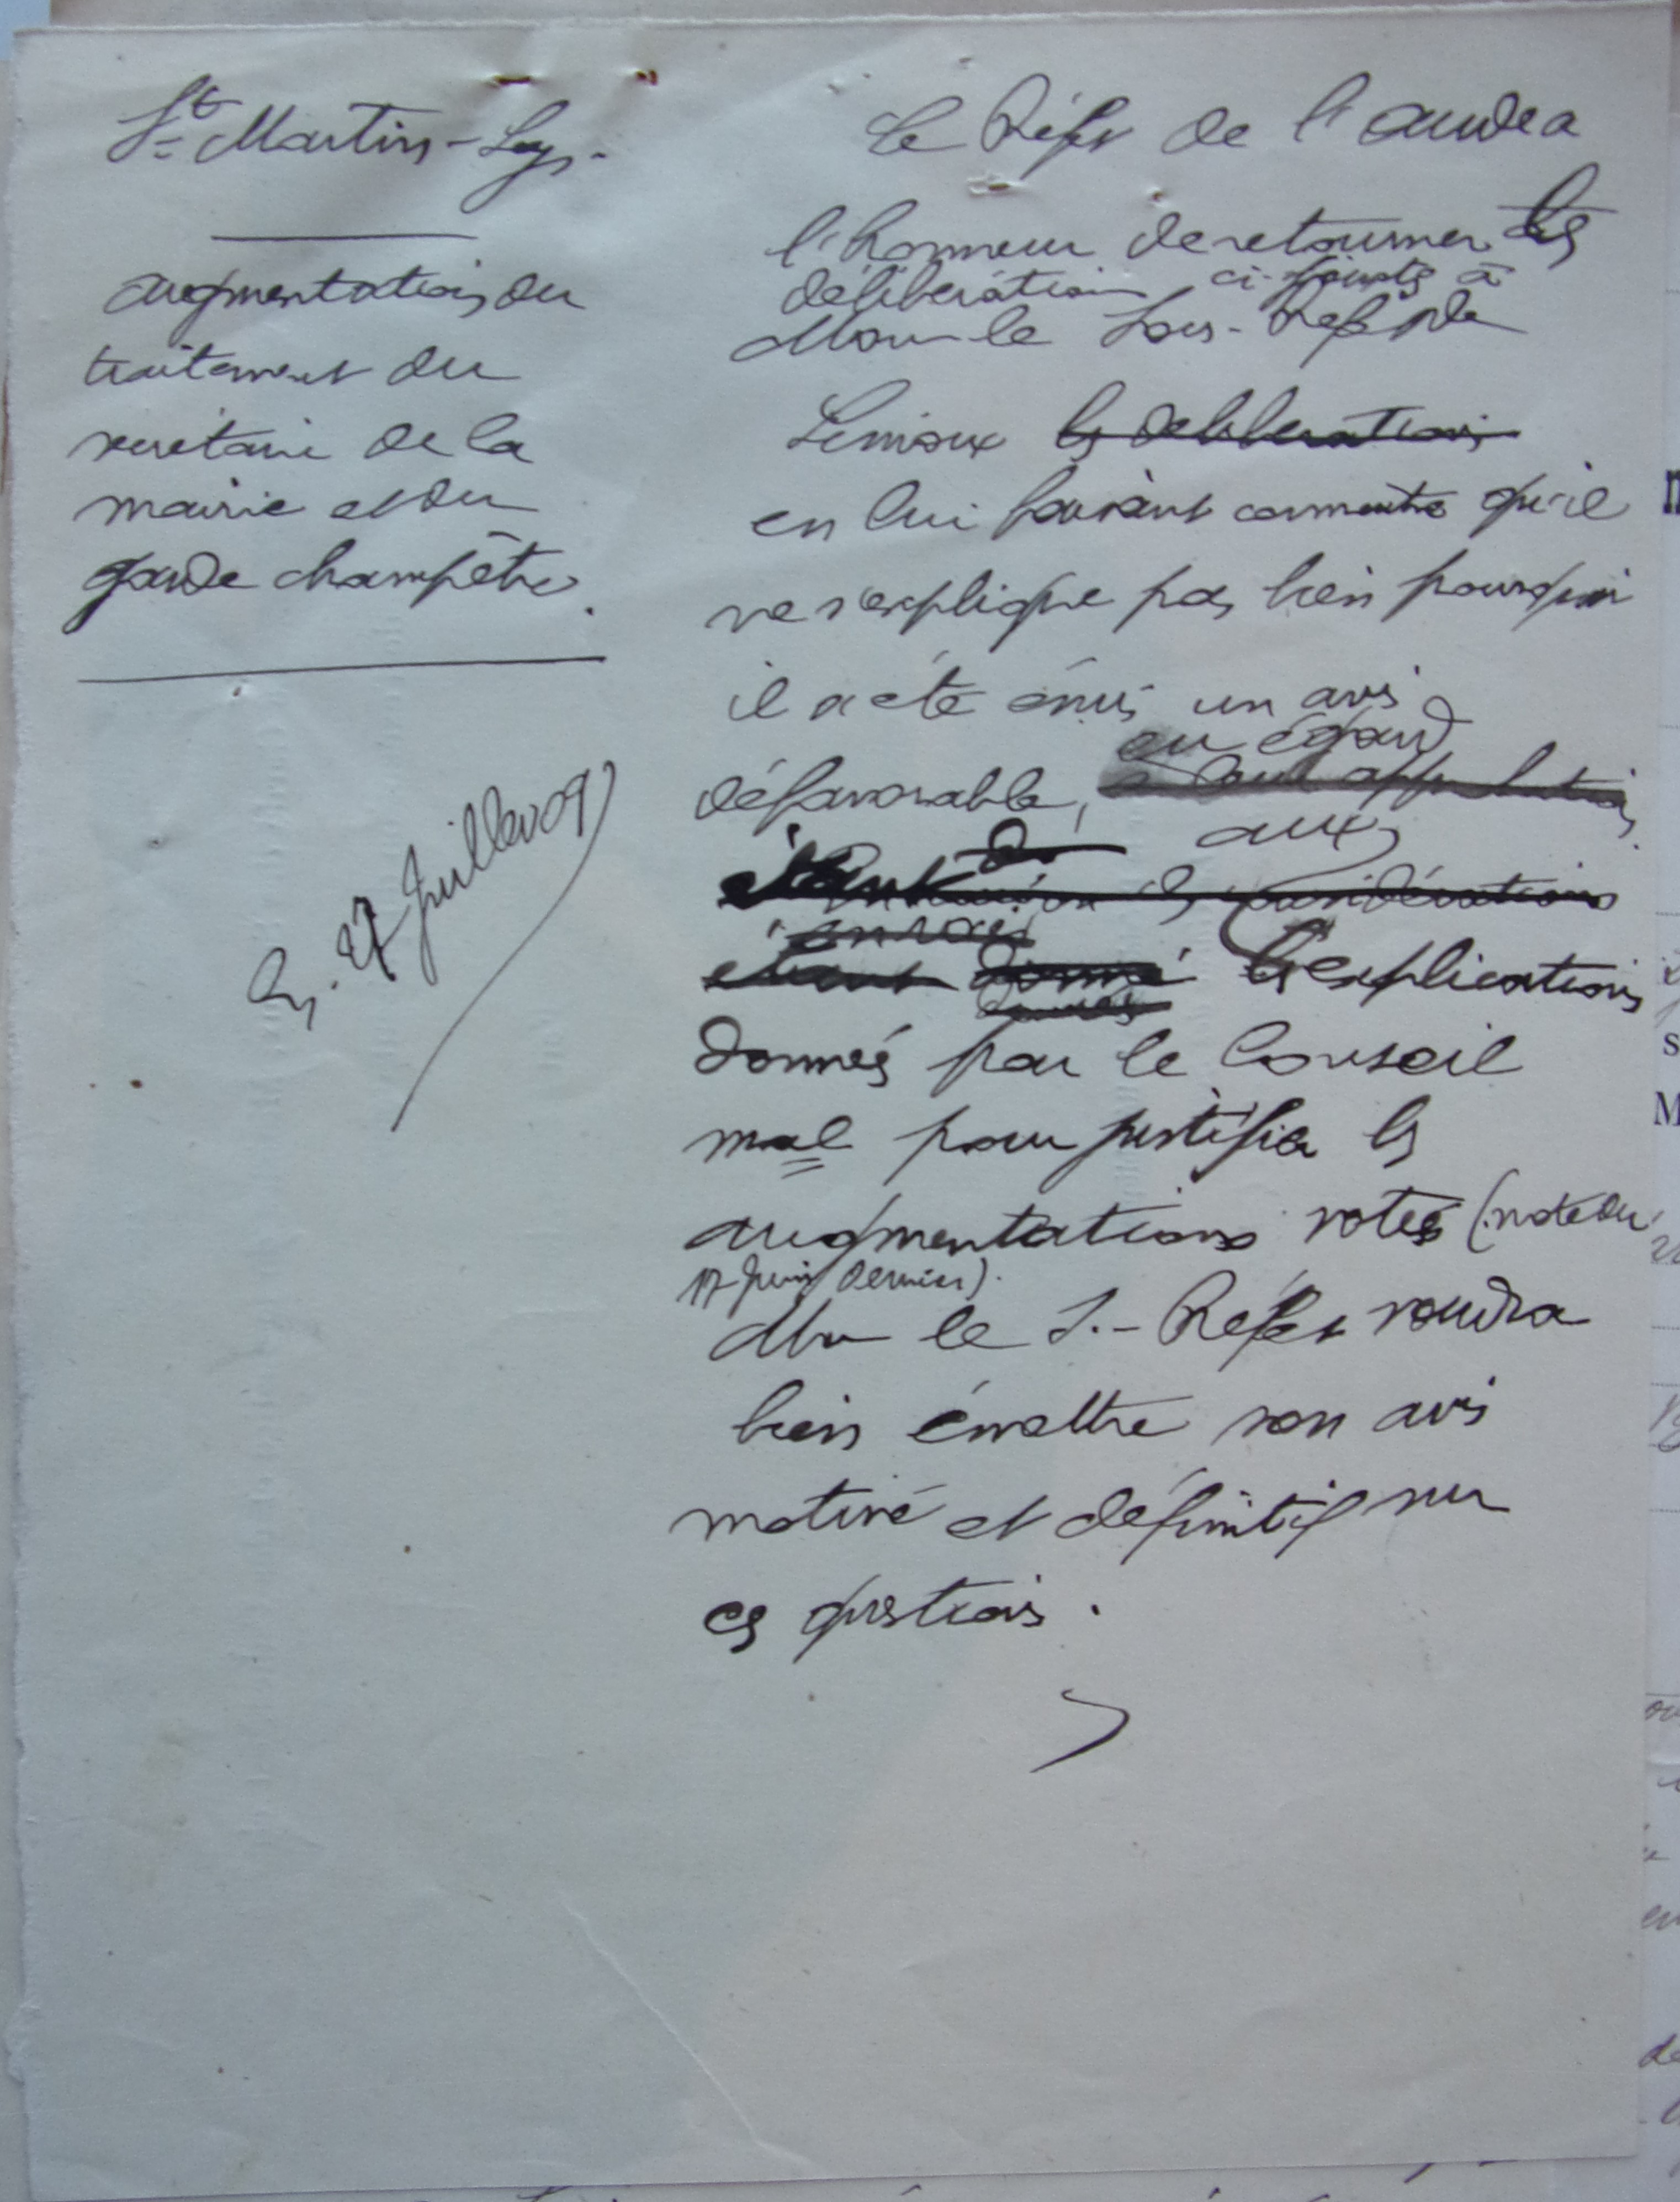 St Martin-Lys.
augmentation du
traitement du
secrétaire de la
mairie et du
garde champêtre.
27 Juillet 09
Le Préfet de l'Aude a
l'honneur de retourner les
délibérations ci-joints à
Monsr le Sous-Préfet de
Limoux les délibérations
en lui faisant connaître qu'il
ne s'explique pas bien pourquoi
il a été émis un avis
eu égard
défavorable,
aux
les considérations
étant donné les explications
donnés par le Conseil
mal pour justifier les
augmentations votées (note du
17 Juin dernier).
Mr le S.-Préfet voudra
bien émettre son avis
motivé et définitif sur
ces questions.